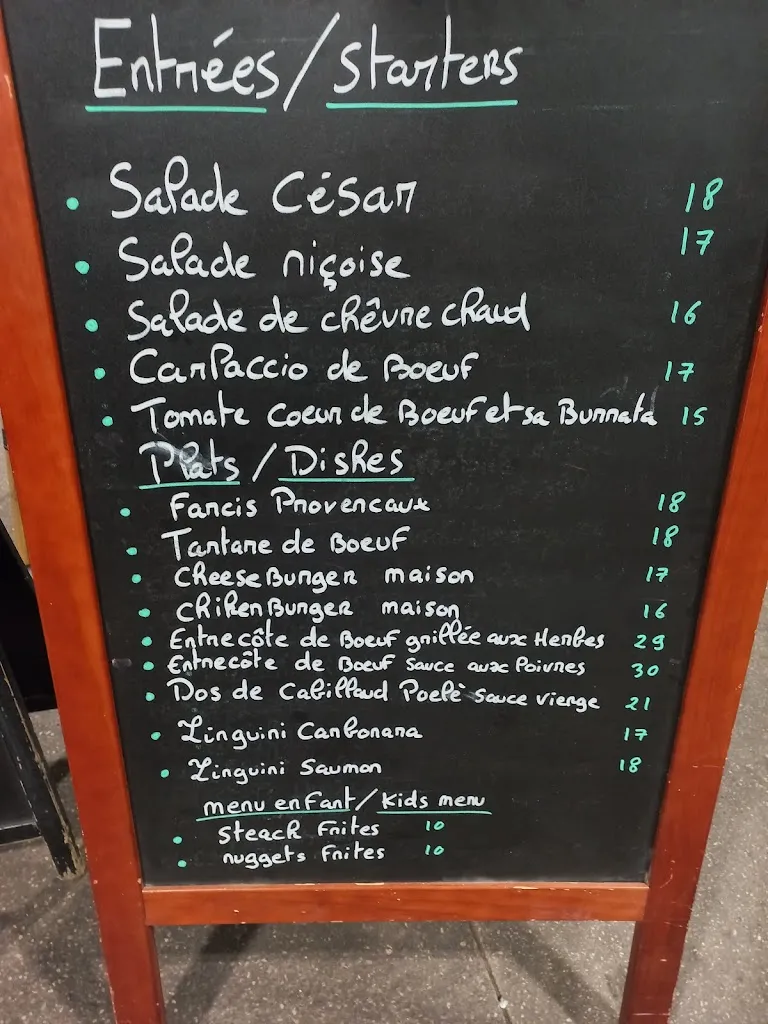 Entrées/Starters
Salade César 18
Salade niçoise 17
Salade de chêvre chaud 16
Carpaccio de Boeuf 17
Tomate Coeur de Boeuf et sa Burrata 15
Plats/Dishes
Farcis Provencaux 18
Tartare de Boeuf 18
CheeseBurger maison 17
ChikenBurger maison 16
Entrecôte de Boeuf grillée aux Herbes 29
Entrecôte de Boeuf Sauce aux Poivres 30
Dos de Cabillaud Poelè Sauce vierge 21
Linguini Carbonara 17
Linguini Saumon 18
menu enfant/Kids menu
Steack Frites 10
nuggets Frites 10